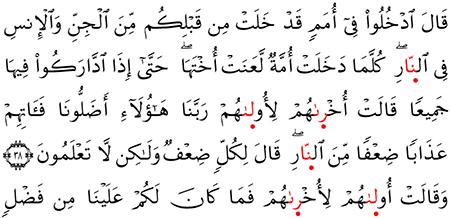 قَالَ ٱدْخُلُوا۟ فِىٓ أُمَمٍ قَدْ خَلَتْ مِن قَبْلِكُم مِّنَ ٱلْجِنِّ وَٱلْإِنسِ
فِى ٱلنّ۪ارِۖ كُلَّمَا دَخَلَتْ أُمَّةٌ لَّعَنَتْ أُخْتَهَاۖ حَتَّىٰٓ إِذَا ٱدَّارَكُوا۟ فِيهَا
جَمِيعًا قَالَتْ أُخْر۪ىٰهُمْ لِأُول۪ىٰهُمْ رَبَّنَا هَـٰٓؤُلَآءِ أَضَلُّونَا فَـَٔاتِهِمْ
عَذَابًا ضِعْفًا مِّنَ ٱلنّ۪ارِۖ قَالَ لِكُلٍّ ضِعْفٌ وَلَـٰكِن لَّا تَعْلَمُونَ ٣٨
وَقَالَتْ أُول۪ىٰهُمْ لِأُخْر۪ىٰهُمْ فَمَا كَانَ لَكُمْ عَلَيْنَا مِن فَضْلٍ